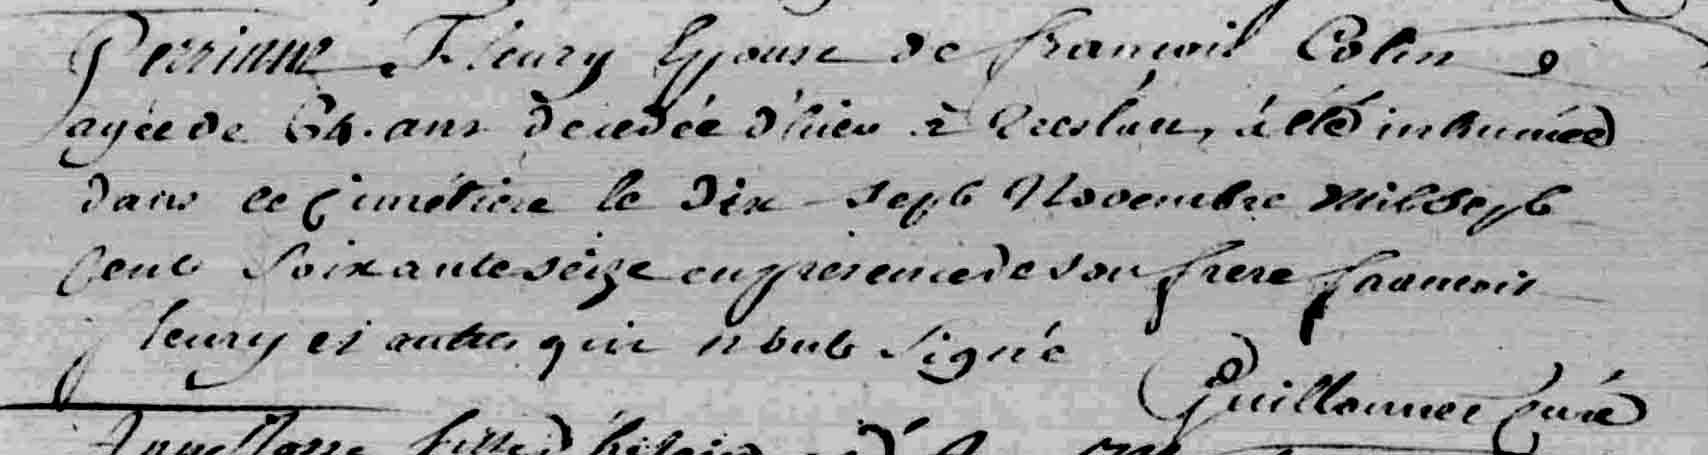 Perrinne Fleury Epouse de francois Colin
agée de 64. ans décédée d'hier à été inhumée
dans ce Cimétiere le dix sept Novembre mil sept
Cent Soixante seize en presence de son frere francois
fleury et autres qui n'ont signé
Guillaumer Curé
fille